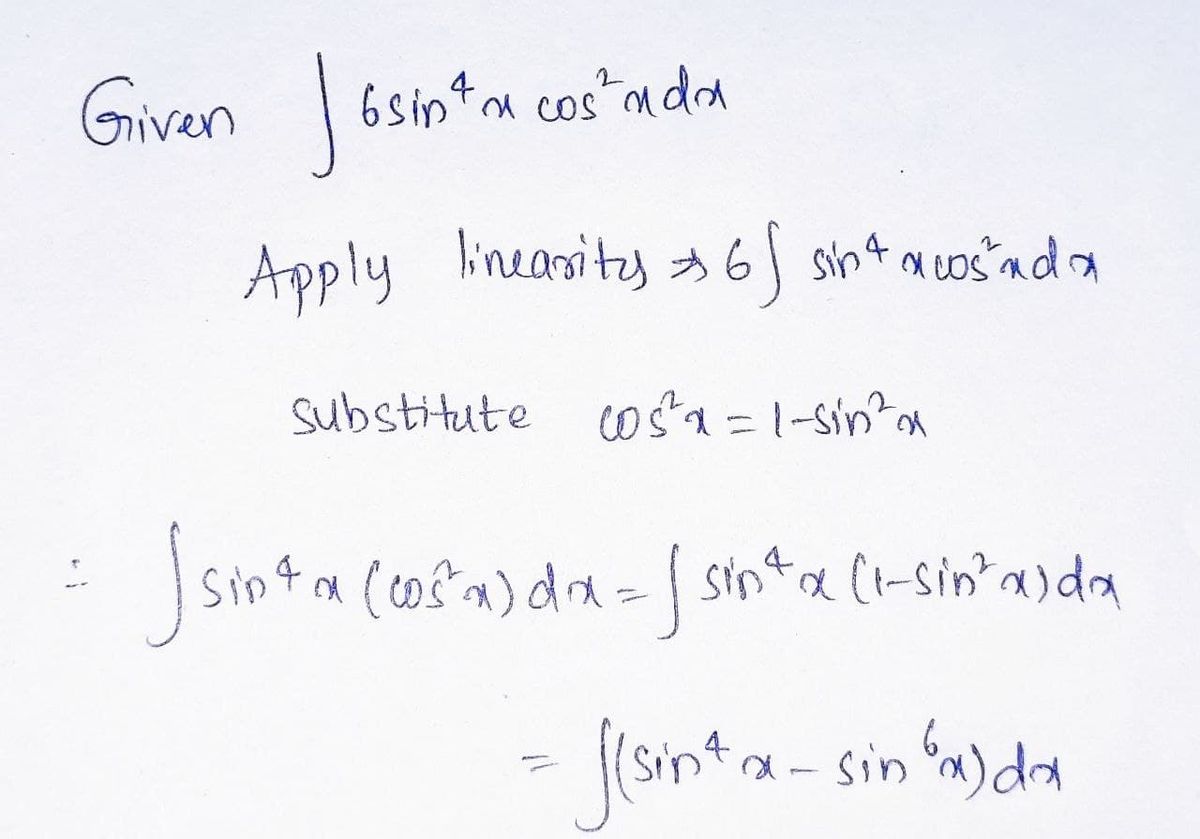 Given ∫ 6sin⁴x cos²x dx
Apply linearity ⇒ 6∫ sin⁴x cos²x dx
substitute cos²x = 1-sin²x
∴ ∫ sin⁴x (cos²x) dx = ∫ sin⁴x (1-sin²x) dx
= ∫(sin⁴x - sin⁶x) dx